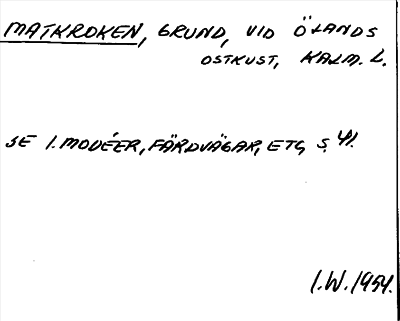 MATKROKEN, GRUND, VID ÖLANDS
OSTKUST, KALM. L.
SE I. MODÉER, FÄRDVÄGAR, ETC, S. 41.
I.W. 1954.